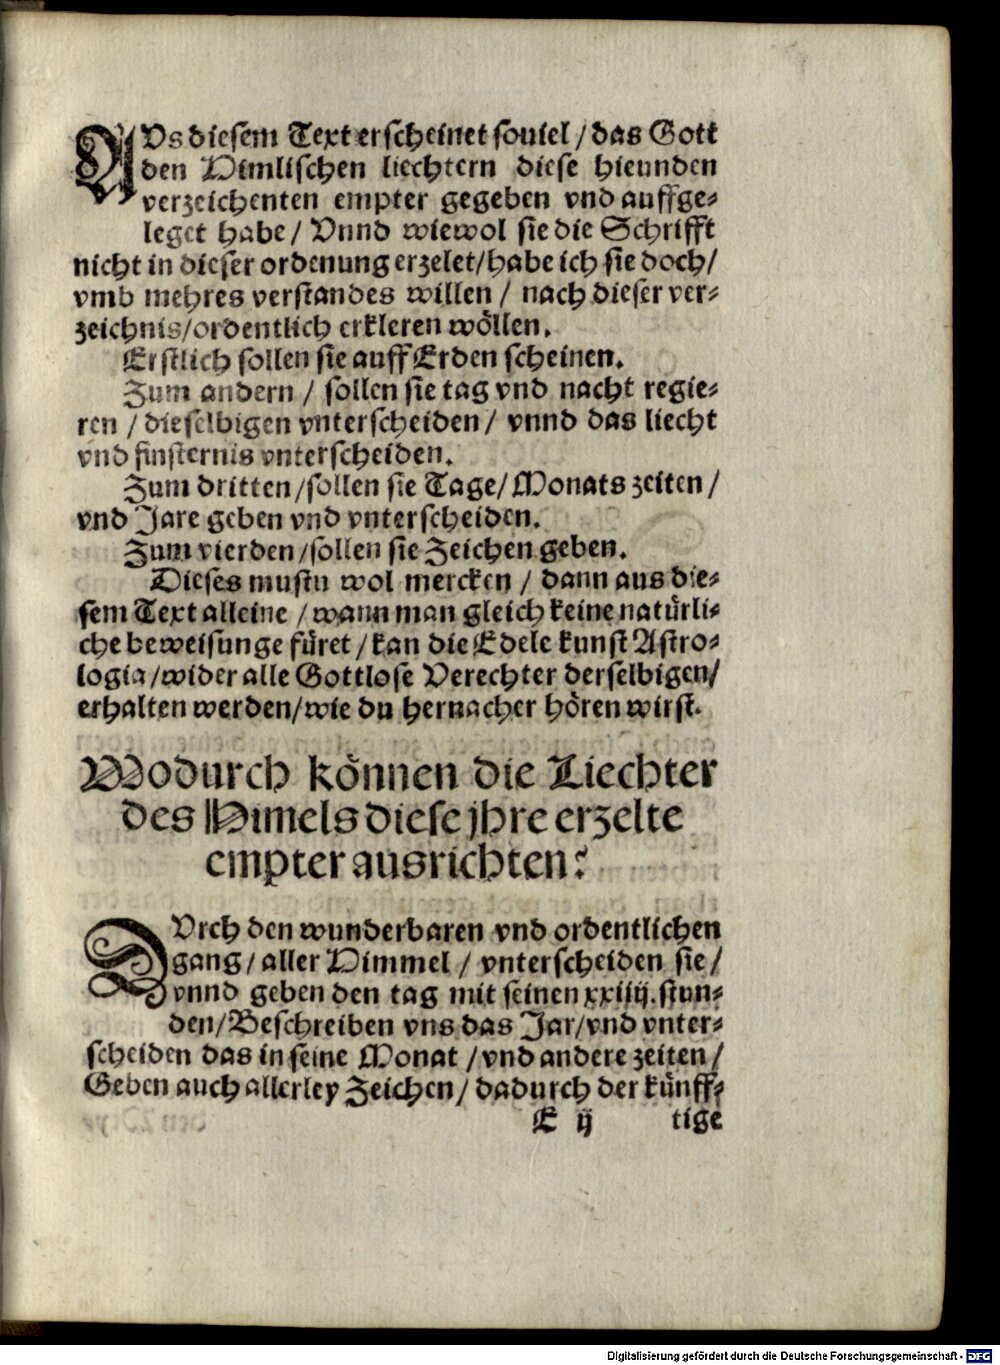 AVs diesem Text erscheinet souiel / das Gott
den Himlischen liechtern diese hieunden
verzeichenten empter gegeben vnd auffge-
leget habe / Vnnd wiewol sie die Schrifft
nicht in dieser ordenung erzelet / habe ich sie doch /
vmb mehres verstandes willen / nach dieser ver-
zeichnis / ordentlich erkleren wöllen.
Erstlich sollen sie auff Erden scheinen.
Zum andern / sollen sie tag vnd nacht regie-
ren / dieselbigen vnterscheiden / vnnd das liecht
vnd finsternis vnterscheiden.
Zum dritten / sollen sie Tage / Monats zeiten /
vnd Jare geben vnd vnterscheiden.
Zum vierden / sollen sie Zeichen geben.
Dieses mustu wol mercken / dann aus die-
sem Text alleine / wann man gleich keine natürli-
che beweisunge füret / kan die Edele kunst Astro-
logia / wider alle Gottlose Verechter derselbigen /
erhalten werden / wie du hernacher hören wirst.
Wodurch können die Liechter
des Himels diese jhre erzelte
empter ausrichten?
DVrch den wunderbaren vnd ordentlichen
gang / aller Himmel / vnterscheiden sie /
vnnd geben den tag mit seinen xxiiij. stun-
den / Beschreiben vns das Jar / vnd vnter-
scheiden das in seine Monat / vnd andere zeiten /
Geben auch allerley Zeichen / dadurch der künff-
E ij tige
Digitalisierung gefördert durch die Deutsche Forschungsgemeinschaft - DFG